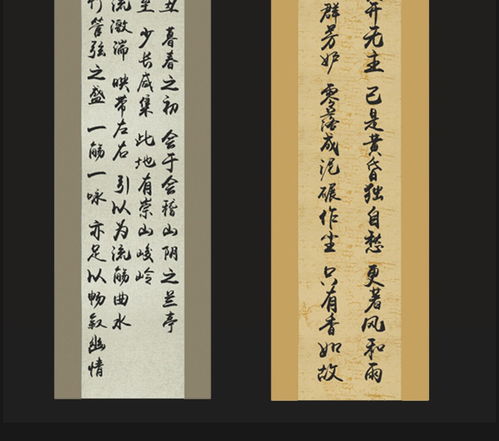 开无主 已是黄昏独自愁 更著风和雨
群芳妒 零落成泥碾作尘 只有香如故
丑 暮春之初 会于会稽山阴之兰亭
至 少长咸集 此地有崇山峻岭
流激湍 映带左右 引以为流觞曲水
管弦之盛 一觞一咏 亦足以畅叙幽情